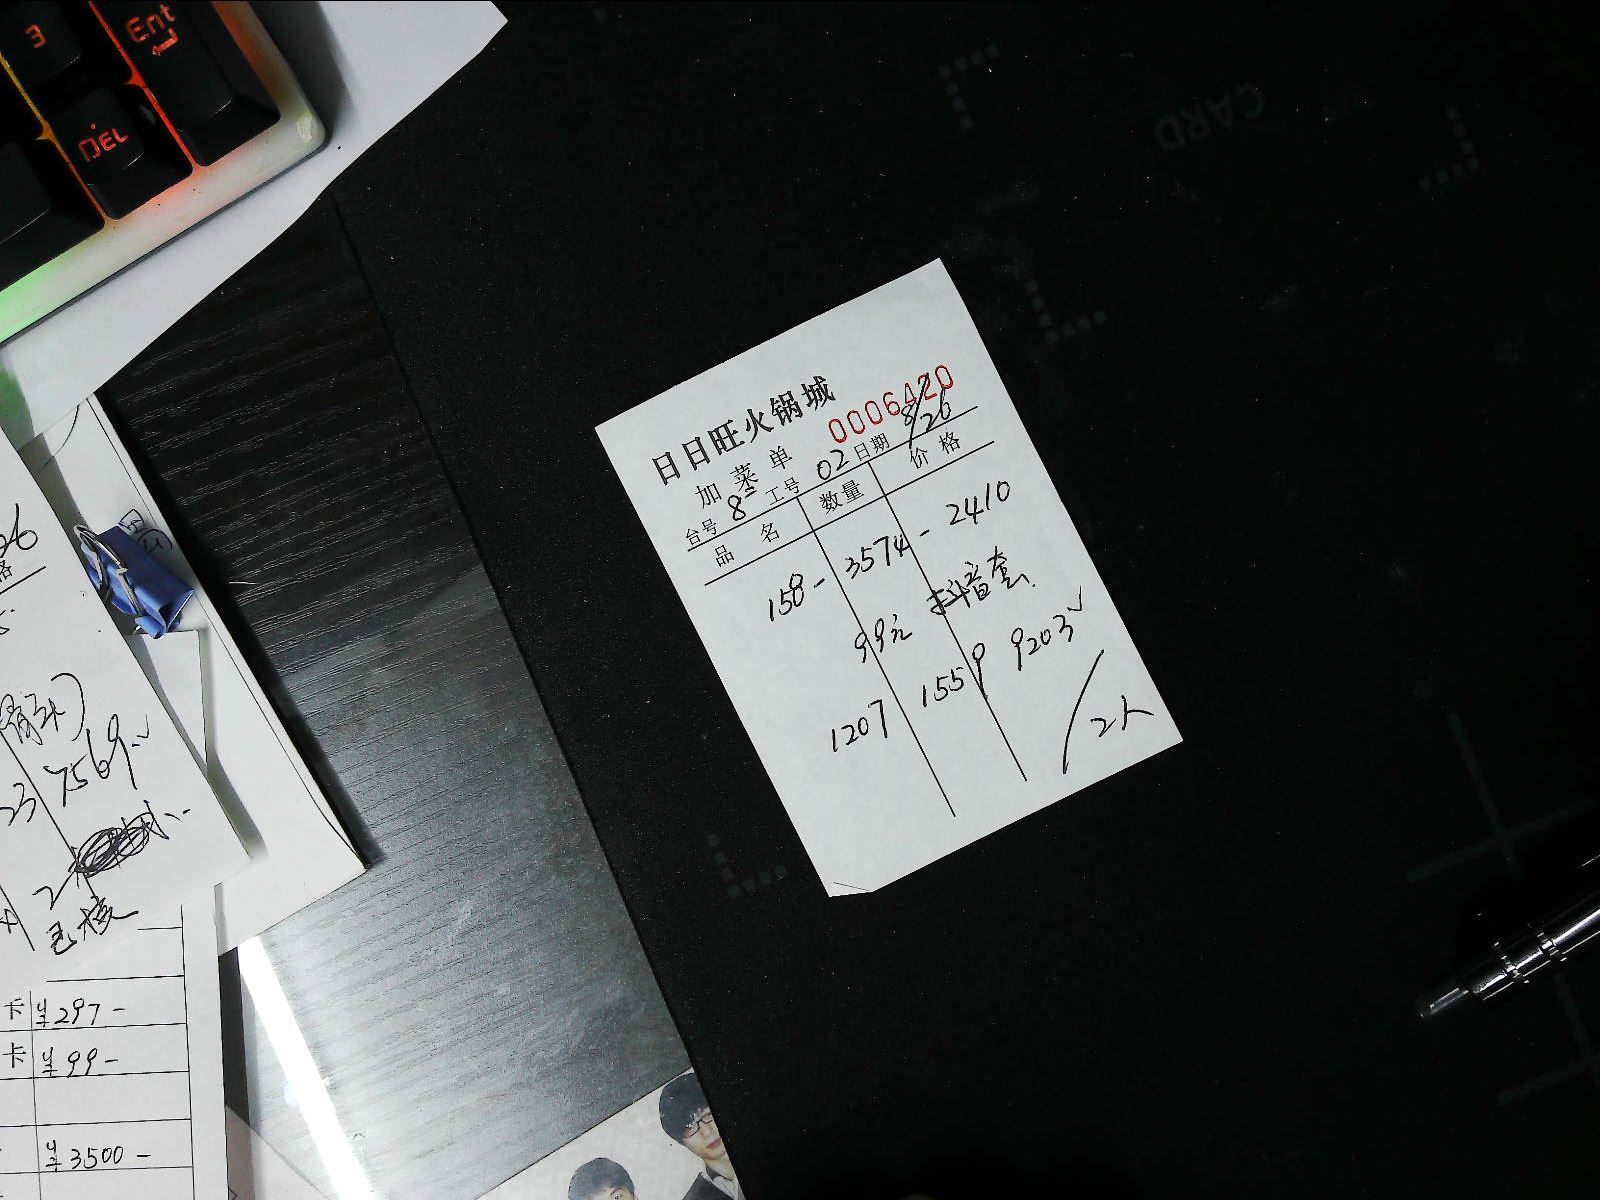 3
Ent
DEL
CARD
日日旺火锅城
加菜单 0006420
台号 8 工号 02 日期 8/26
品名 数量 价格
158- 3574- 2410
99元 抖音套
1207 1559 9203✓
/2人
26
格
7569.✓
23
2
已核
卡 ¥297-
卡 ¥99-
¥3500-